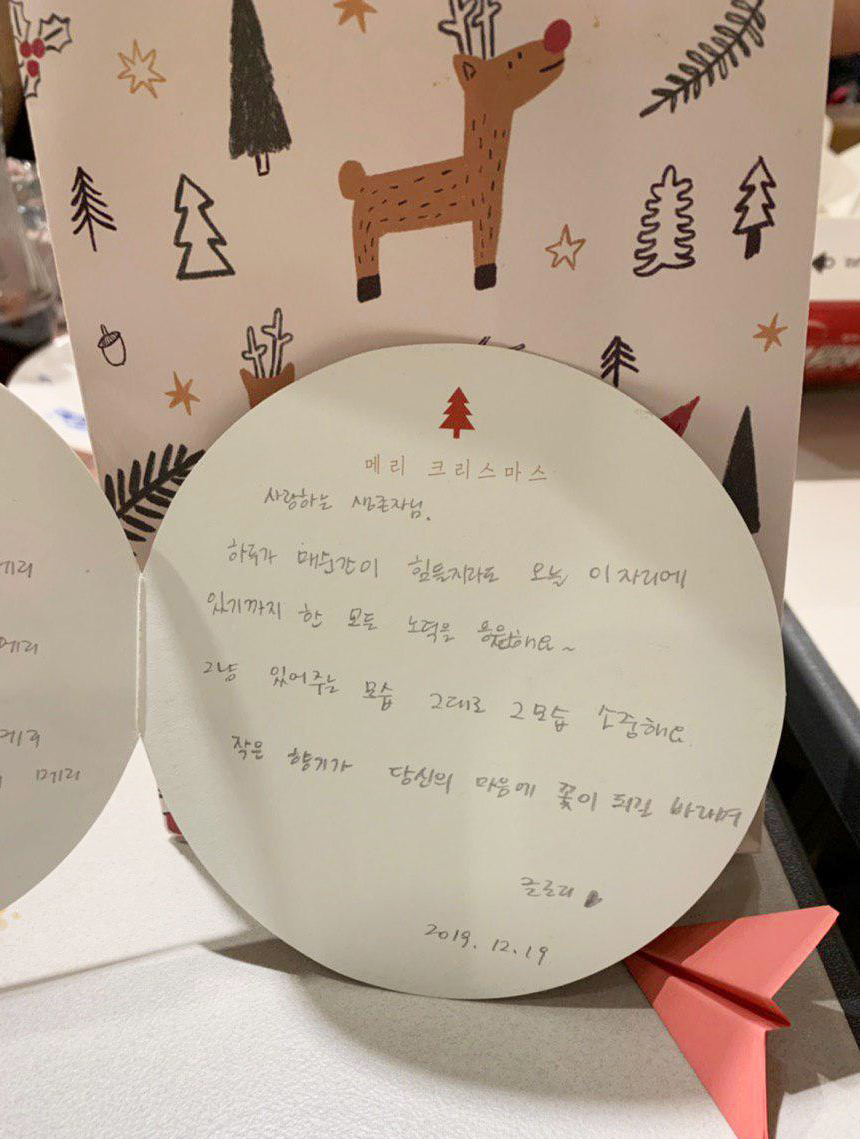 메리 크리스마스
사랑하는 생존자님.
하루가 매순간이 힘들지라도 오늘 이 자리에
있기까지 한 모든 노력을 응원해요~
그냥 있어주는 모습 그대로 그모습 소중해요.
작은 향기가 당신의 마음에 꽃이 되길 바라며
글로리
2019. 12. 19
메리
메리
메리
메리